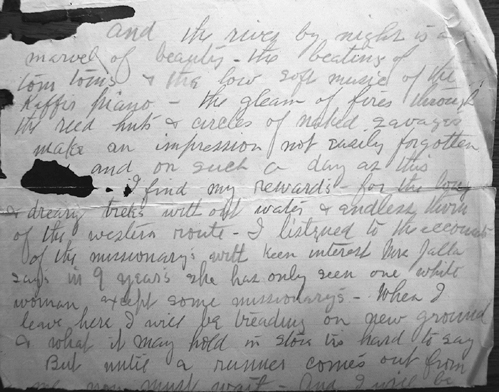 and the river by night is a
marvel of beauty - the beating of
tom toms & the low soft music of the
Kaffir piano - the gleam of fires through
the reed huts & circles of naked savages
make an impression not easily forgotten
and on such a day as this
I find my rewards - for the long
& dreary treks without water & endless thorn
of the western route - I listened to the accounts
of the missionary's with keen interest Mrs Jalla
says in 9 years she has only seen one white
woman, except some missionary's - When I
leave here I will be treading on new ground
& what it may hold in store tis hard to say
But until a runner comes out from
me now must wait - and I will be